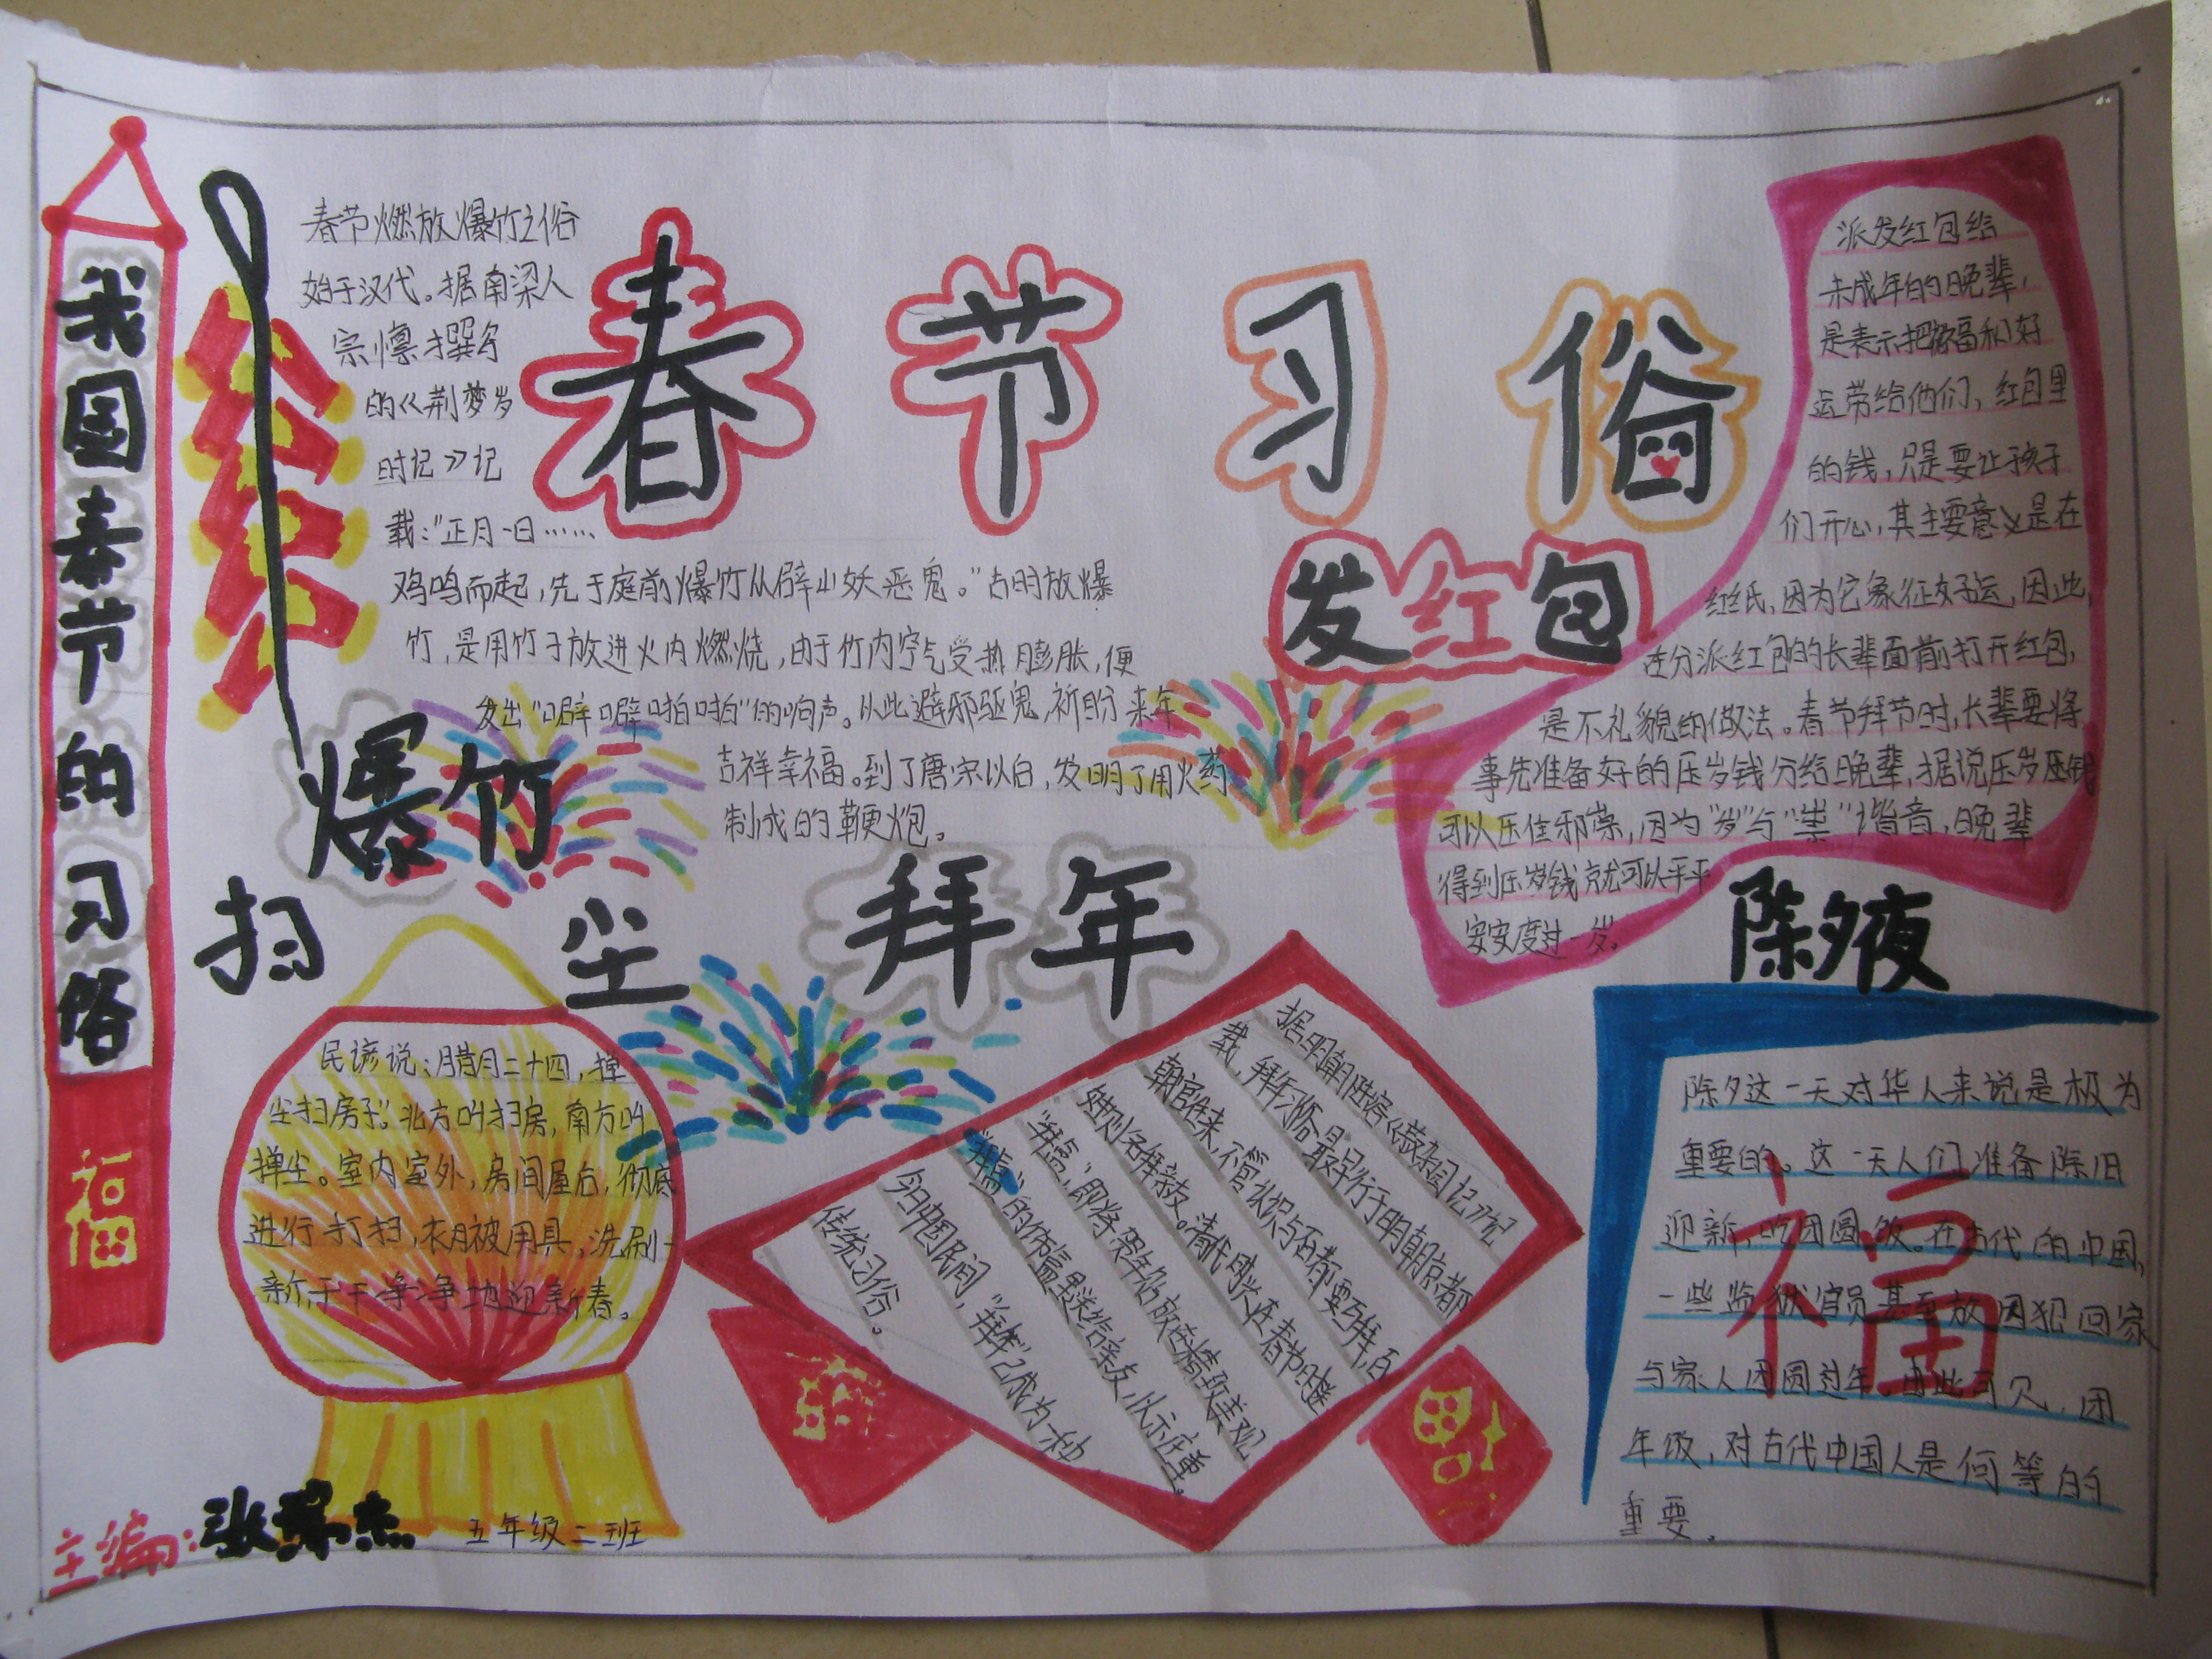 我国春节的习俗
福
春节习俗
春节燃放爆竹之俗
始于汉代。据南梁人
宗懔撰写
的《荆梦岁
时记》记
载："正月一日……
鸡鸣而起,先于庭前爆竹从辟山妖恶鬼。"古时放爆
竹,是用竹子放进火内燃烧,由于竹内空气受热膨胀,便
发出"噼噼啪啪"的响声。以此避邪驱鬼,祈盼来年
吉祥幸福。到了唐宋以后,发明了用火药
制成的鞭炮。
爆竹
发红包
派发红包给
未成年的晚辈,
是表示把祝福和好
运带给他们,红包里
的钱,只是要让孩子
们开心,其主要意义是在
红纸,因为它象征好运,因此,
在分派红包的长辈面前打开红包,
是不礼貌的做法。春节拜节时,长辈要将
事先准备好的压岁钱分给晚辈,据说压岁钱
可以压住邪祟,因为"岁"与"祟"谐音,晚辈
得到压岁钱就可以平平
安安度过一岁。
扫尘
民谚说：腊月二十四,掸
尘扫房子"北方叫扫房,南方叫
掸尘。室内室外,房间屋后,彻底
进行打扫,衣被用具,洗刷一
新,干干净净地迎新春。
拜年
据明朝陆容《菽园杂记》记
载,拜年习俗最早行于明朝京都
朝官往来,不管认识与否都要互拜,百
姓则各拜亲友。清代时兴在春节时
"拜盒",即将贺年
"拜盒"的帖盒里送给亲友,以示庄重。
今日中国民间,"拜年"已成为一种
传统习俗。
福
福
除夕夜
除夕这一天对华人来说是极为
重要的。这一天人们准备除旧
迎新,吃团圆饭。在古代的中国,
一些监狱官员甚至放囚犯回家
与家人团圆过年。由此可见,团
年饭,对古代中国人是何等的
重要。
福
主编：张瑞杰 五年级二班